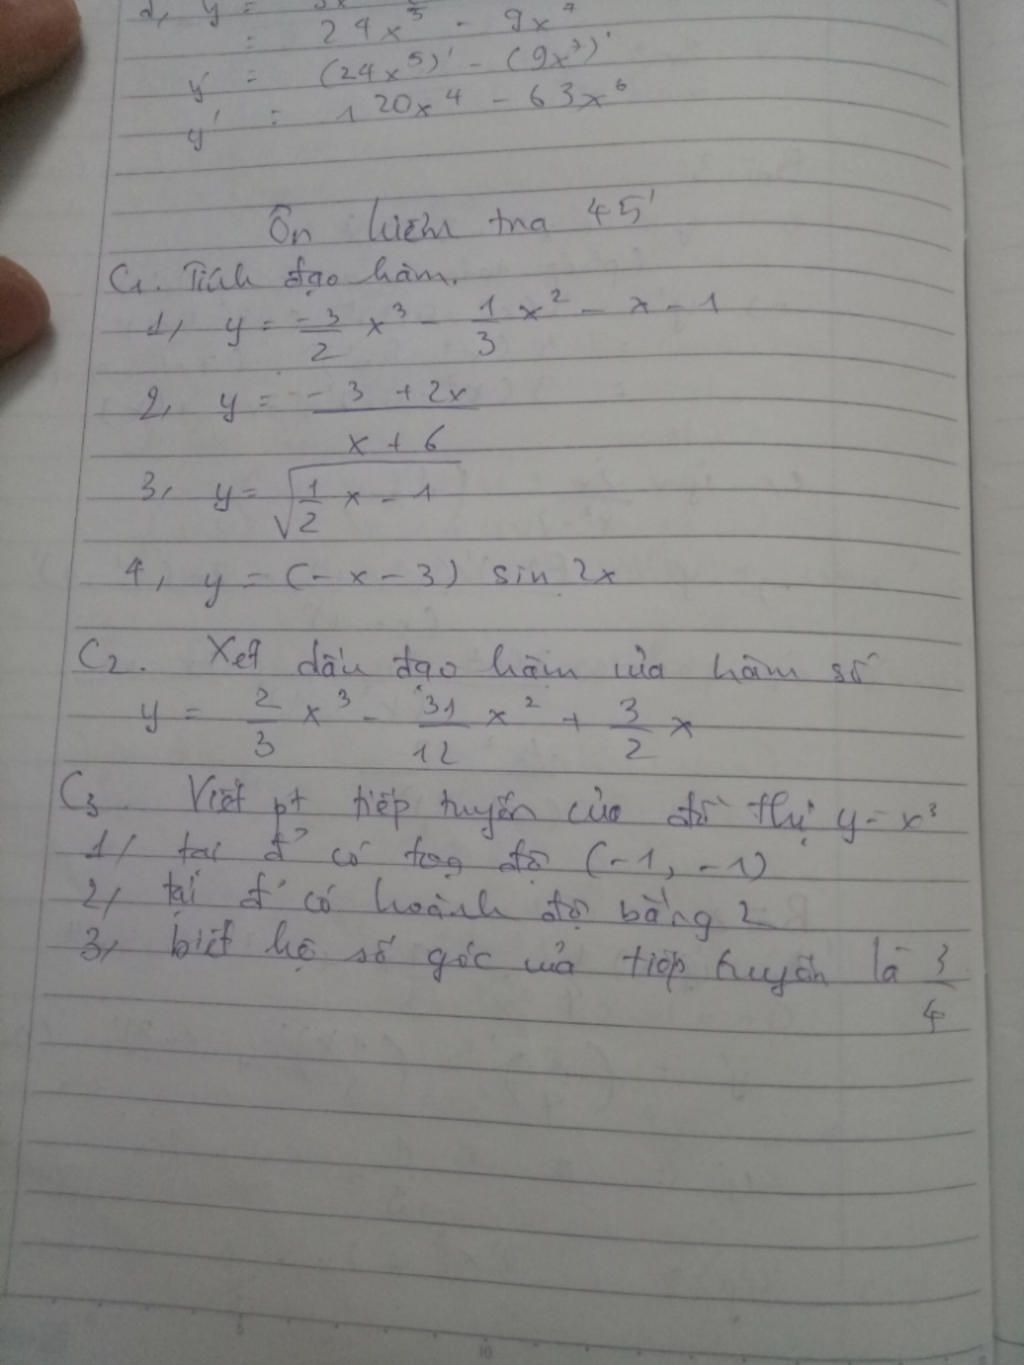 2, y =
= 24x⁵ - 9x⁷
y' = (24x⁵)' - (9x⁷)'
y' = 120x⁴ - 63x⁶
Ôn kiểm tra 45'
C1. Tính đạo hàm.
1, y = -3/2 x³ - 1/3 x² - x - 1
2, y = (-3 + 2x)/(x + 6)
3, y = √(1/2 x - 1)
4, y = (-x - 3) sin 2x
C2. Xét dấu đạo hàm của hàm số
y = 2/3 x³ - 31/12 x² + 3/2 x
C3 Viết pt tiếp tuyến của đồ thị y = x³
1, tại đ' có toạ độ (-1, -1)
2, tại đ' có hoành độ bằng 2
3, biết hệ số góc của tiếp tuyến là 3/4